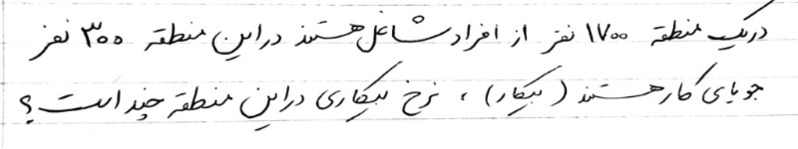 دریک منطقه ۱۷۰۰ نفر از افراد شاغل هستند دراین منطقه ۳۰۰ نفر
جویای کار هستند (بیکار) ، نرخ بیکاری دراین منطقه چند است ؟